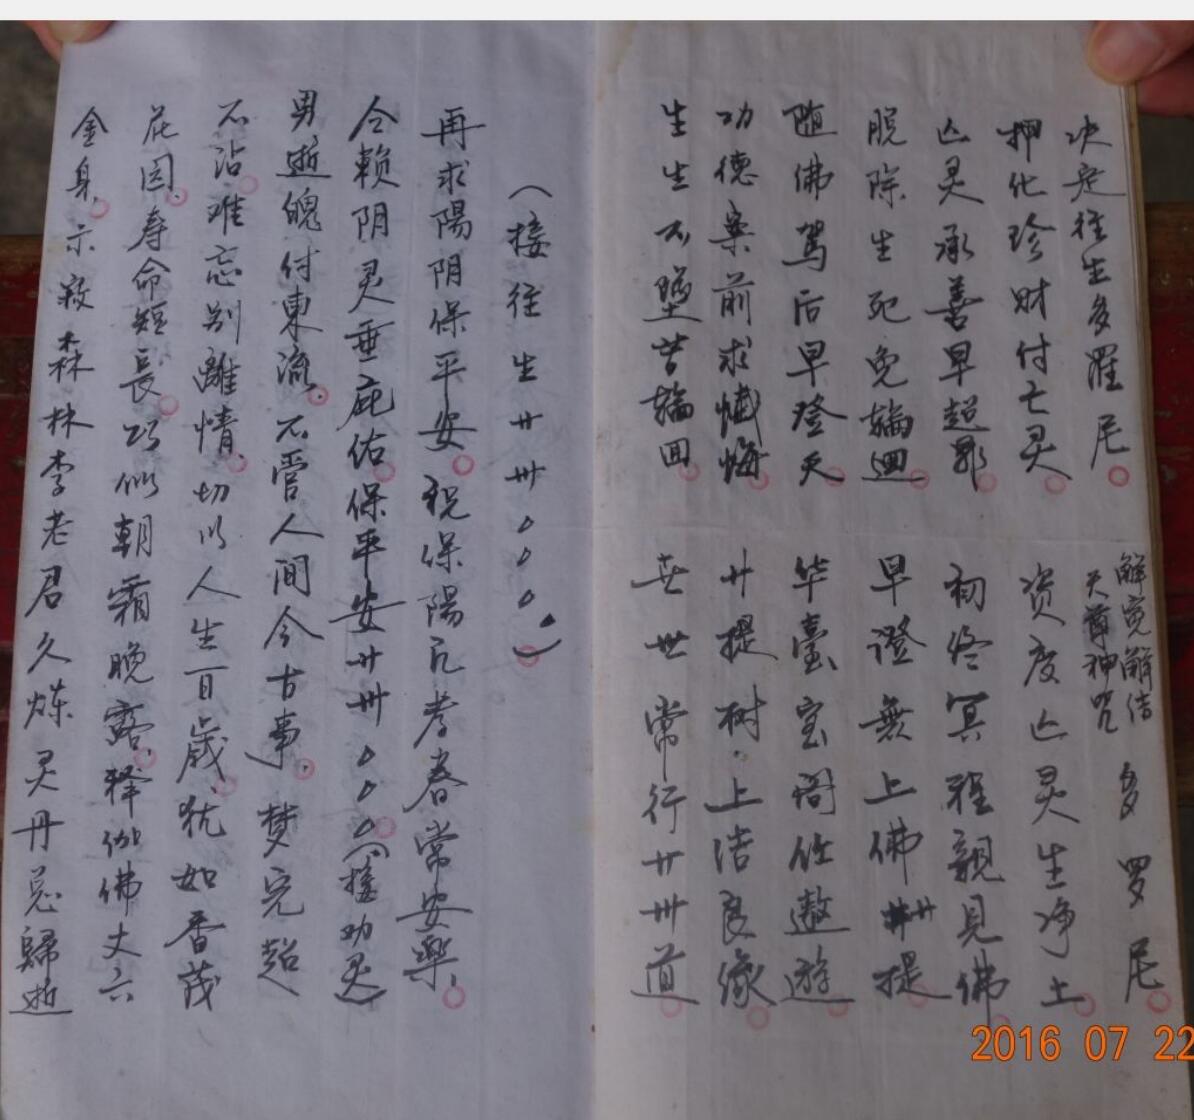 决定往生多羅尼
解冤解结
天尊神咒
多罗尼
押化珍财付亡灵
资度亡灵生净土
亡灵承善早超昇
初终冥程親見佛
脱除生死免輪迴
早證無上佛卅卄提
随佛驾后早登天
华臺宝阁任遨遊
功德案前求懺悔
廾提树上洁良缘
生生不墮苦輪回
世世常行廾卅道
（接往生廾卅。。。）
再求陽阴保平安 祝保陽元孝眷常安樂
今賴阴灵垂庇佑保平安廾卅。。。（接功灵）
男逝魄付東流不管人间今古事梦完超
不沾难忘别離情切以人生百歲犹如香茂
花园寿命短長巧似朝霜晚露释伽佛丈六
金身示寂森林李老君久炼灵丹总歸逝
2016 07 22